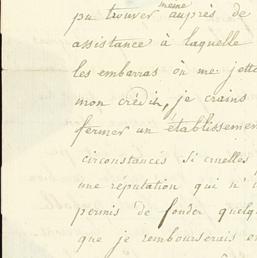 pu trouver même auprès de
assistance à laquelle
les embarras où me jette
mon crédit, je crains
fermer un établissemen
circonstances si cruelles
une réputation qui n'
permis de fonder quelq
que je rembourserais e